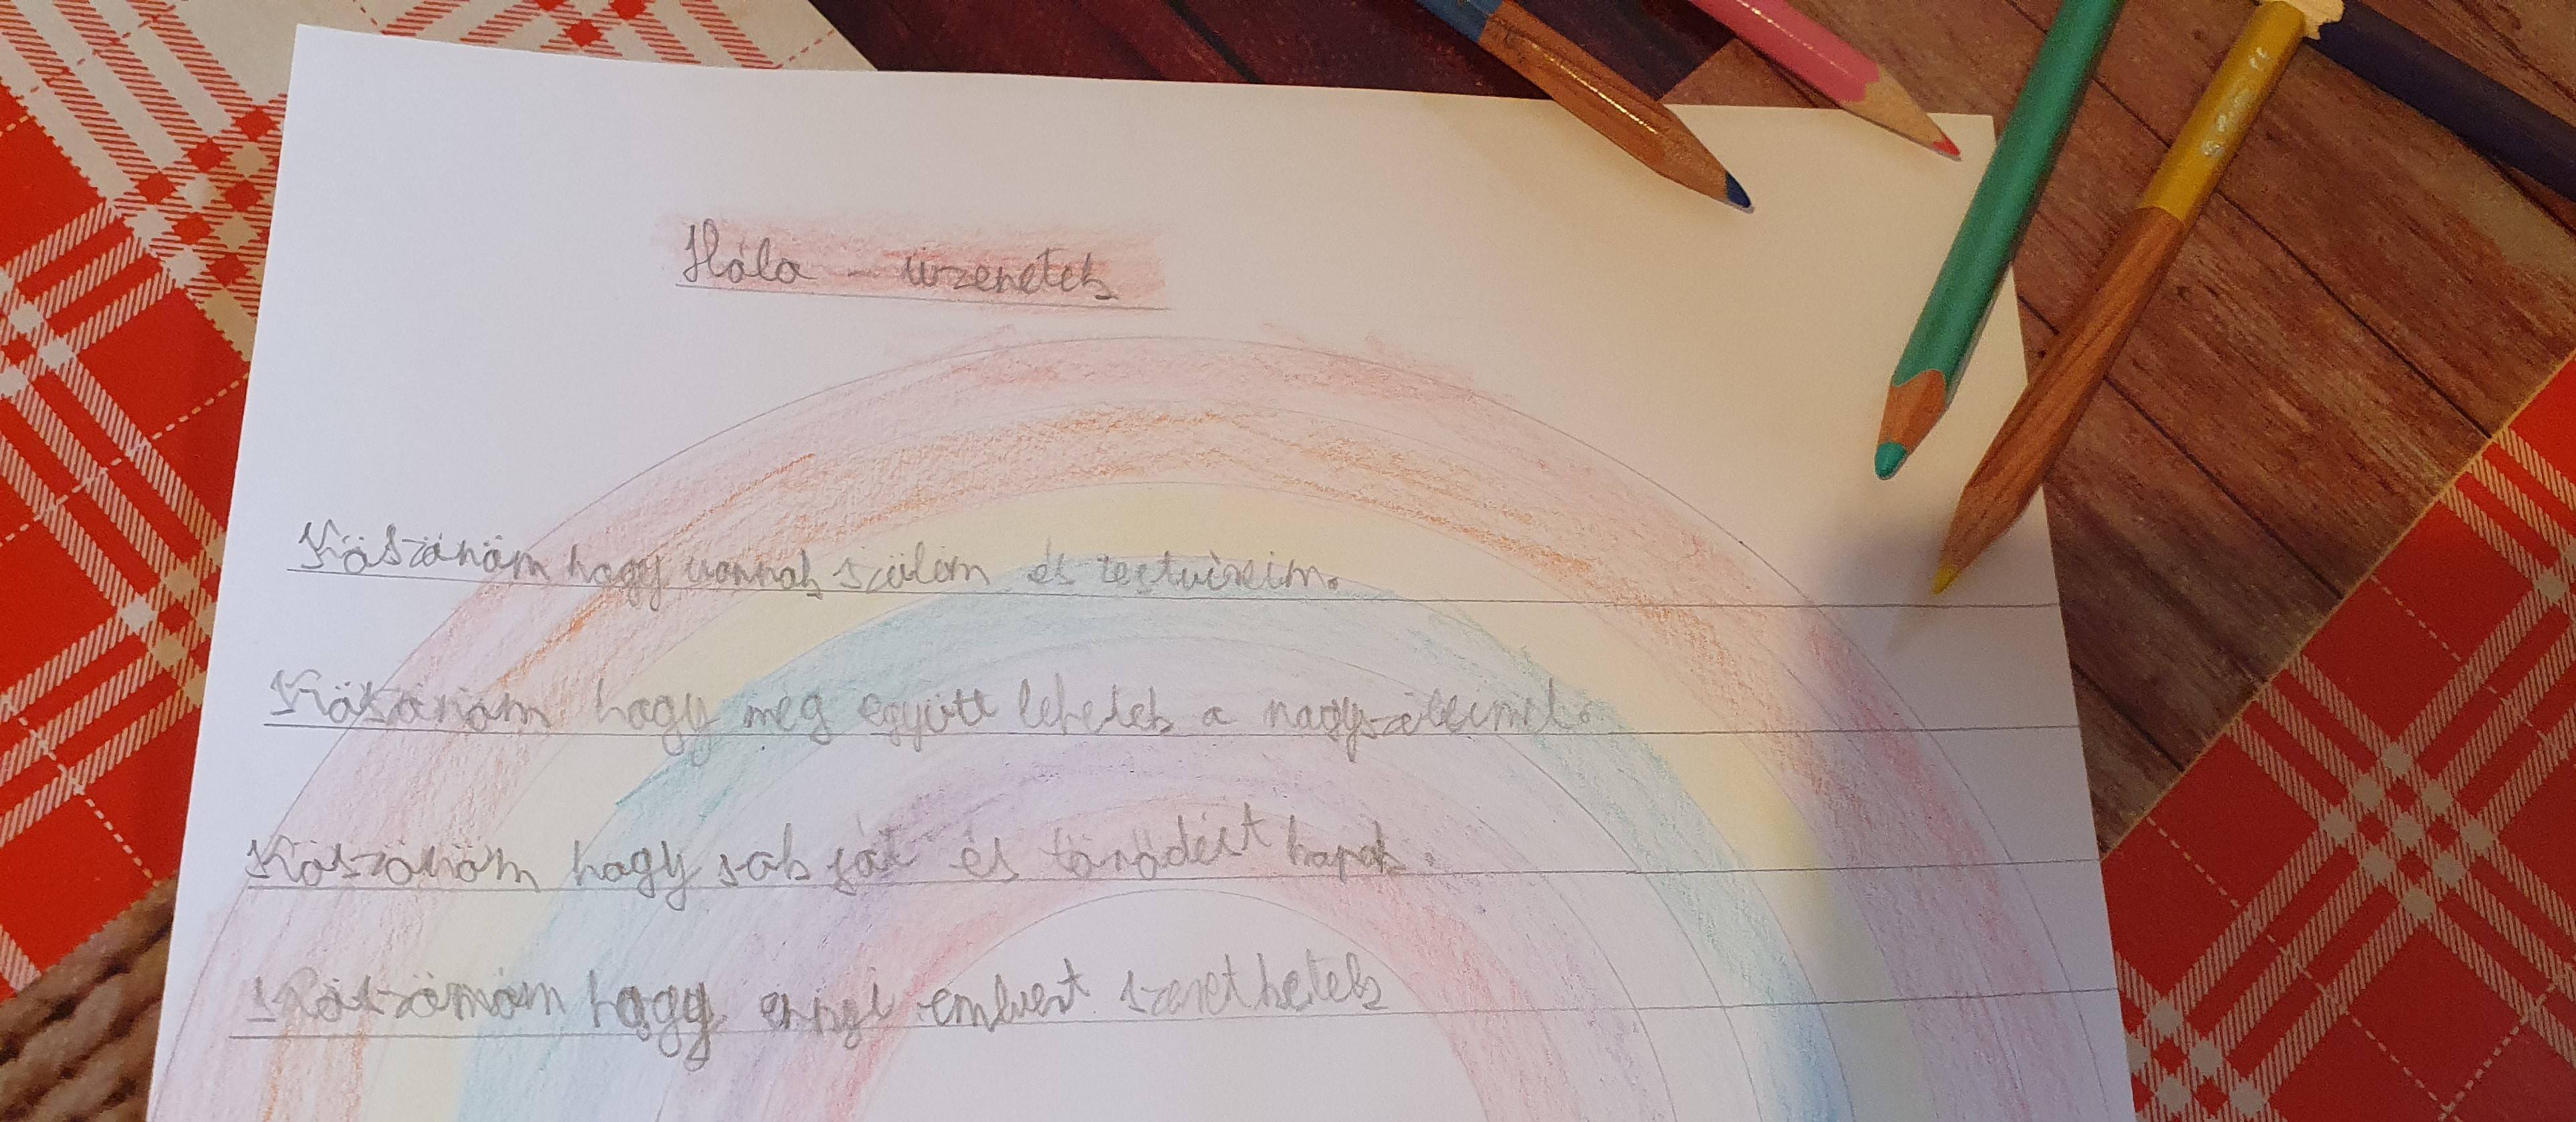 Hála - üzenetek
Köszönöm hogy vannak szüleim és testvéreim.
Köszönöm hogy még együtt lehetek a nagyszüleimel.
Köszönöm hogy sok jót és törődést kapok.
Köszönöm hogy ennyi embert szerethetek